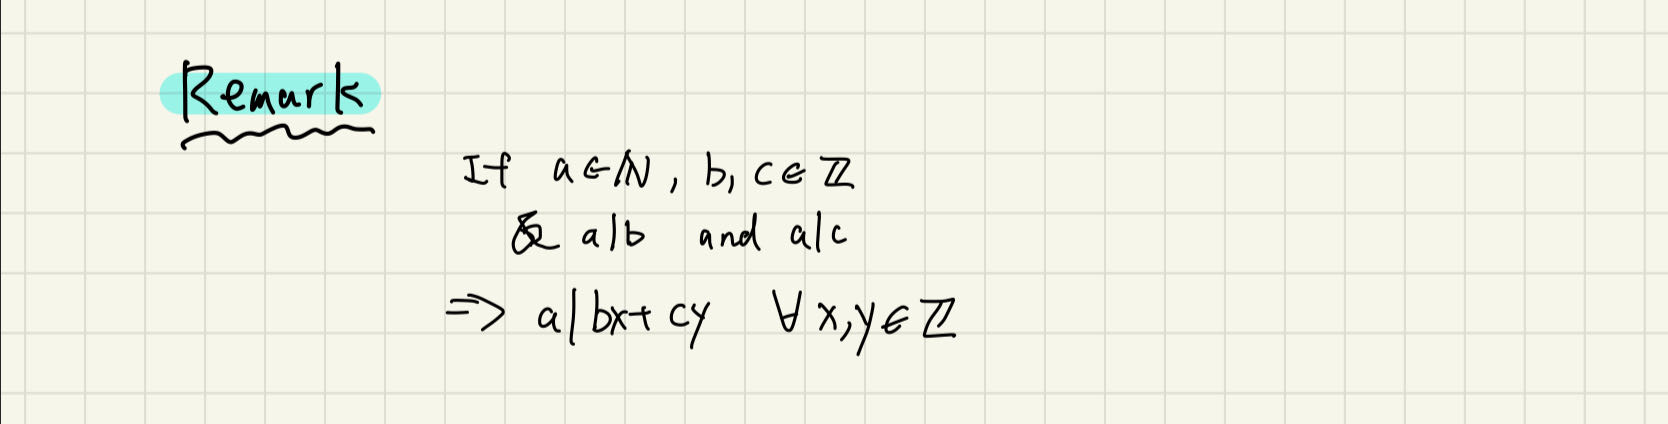 Remark
If a∈ℕ, b, c∈ℤ
& a|b and a|c
⇒ a|bx+cy ∀x,y∈ℤ